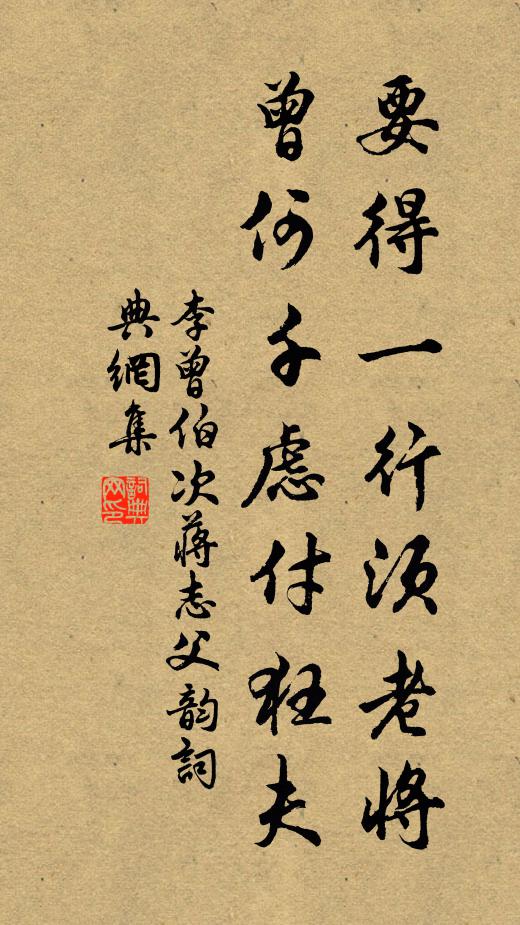 要得一行須老將
曾何千慮付狂夫
李曾伯次蔣志父韵詞
典網集
詞典網印